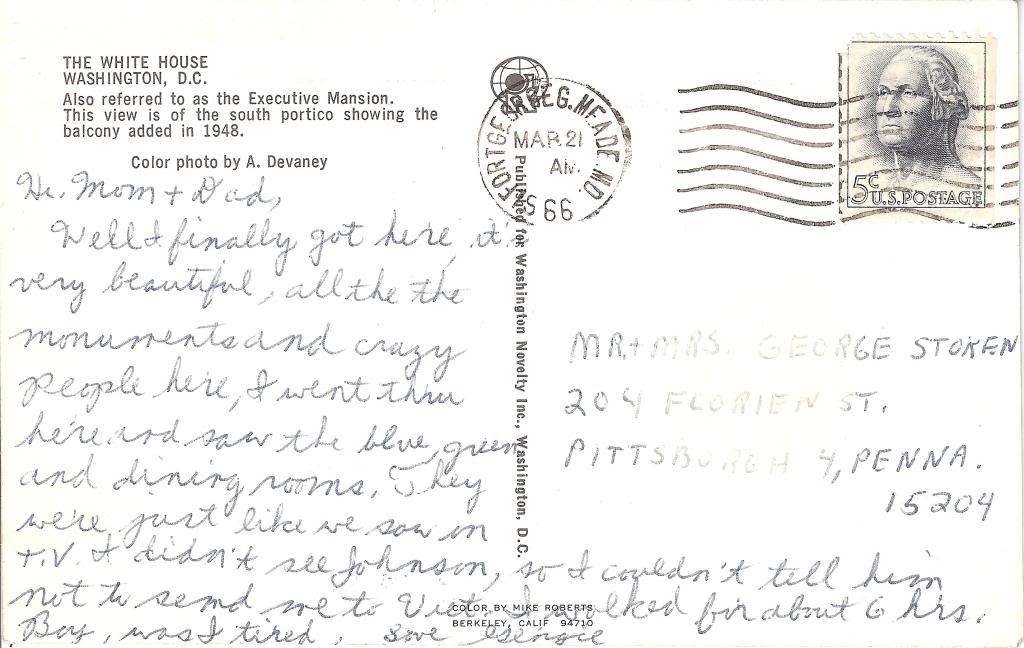 THE WHITE HOUSE
WASHINGTON, D.C.
Also referred to as the Executive Mansion.
This view is of the south portico showing the
balcony added in 1948.
Color photo by A. Devaney
Hi, Mom + Dad,
Well I finally got here, it's
very beautiful, all the the
monuments and crazy
people here, I went thru
here and saw the blue, green
and dining rooms. They
were just like we saw on
T.V. I didn't see Johnson, so I couldn't tell him
not to send me to Viet. I walked for about 6 hrs.
Boy, was I tired. Love George
Published for Washington Novelty Inc., Washington, D.C.
COLOR BY MIKE ROBERTS
BERKELEY, CALIF 94710
FORT GEORGE G. MEADE MD
MAR 21
AM
66
5c
U.S. POSTAGE
MR. + MRS. GEORGE STOKEN
204 FLORIEN ST.
PITTSBURGH 4, PENNA.
15204